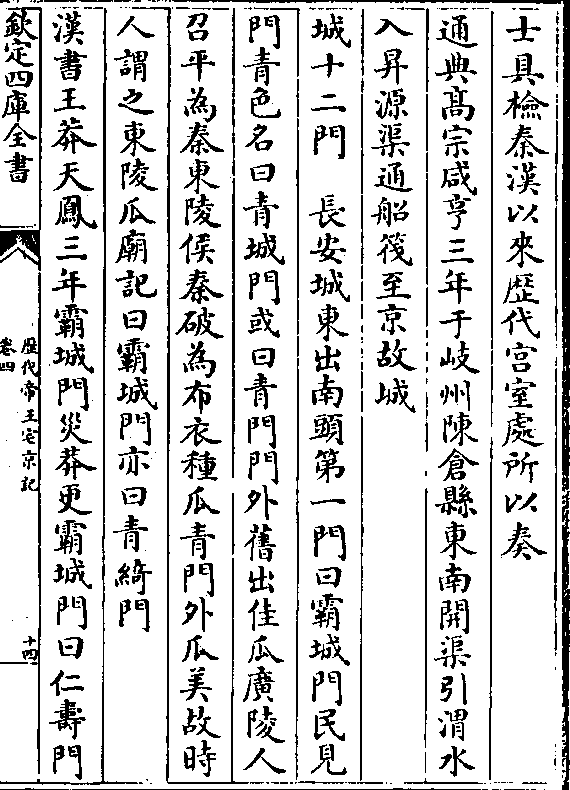 士具檢秦漢以來歴代宫室處所以奏
通典髙宗咸亨三年于岐州陳倉縣東南開渠引渭水
入昇源渠通船筏至京故城
城十二門　長安城東出南頭第一門曰霸城門民見
門青色名曰青城門或曰青門門外舊出佳瓜廣陵人
召平為秦東陵侯秦破為布衣種瓜青門外瓜美故時
人謂之東陵瓜廟記曰霸城門亦曰青綺門
漢書王莽天鳳三年霸城門災莽更霸城門曰仁壽門
欽定四庫全書
歴代帝王宅京記
卷四
十四